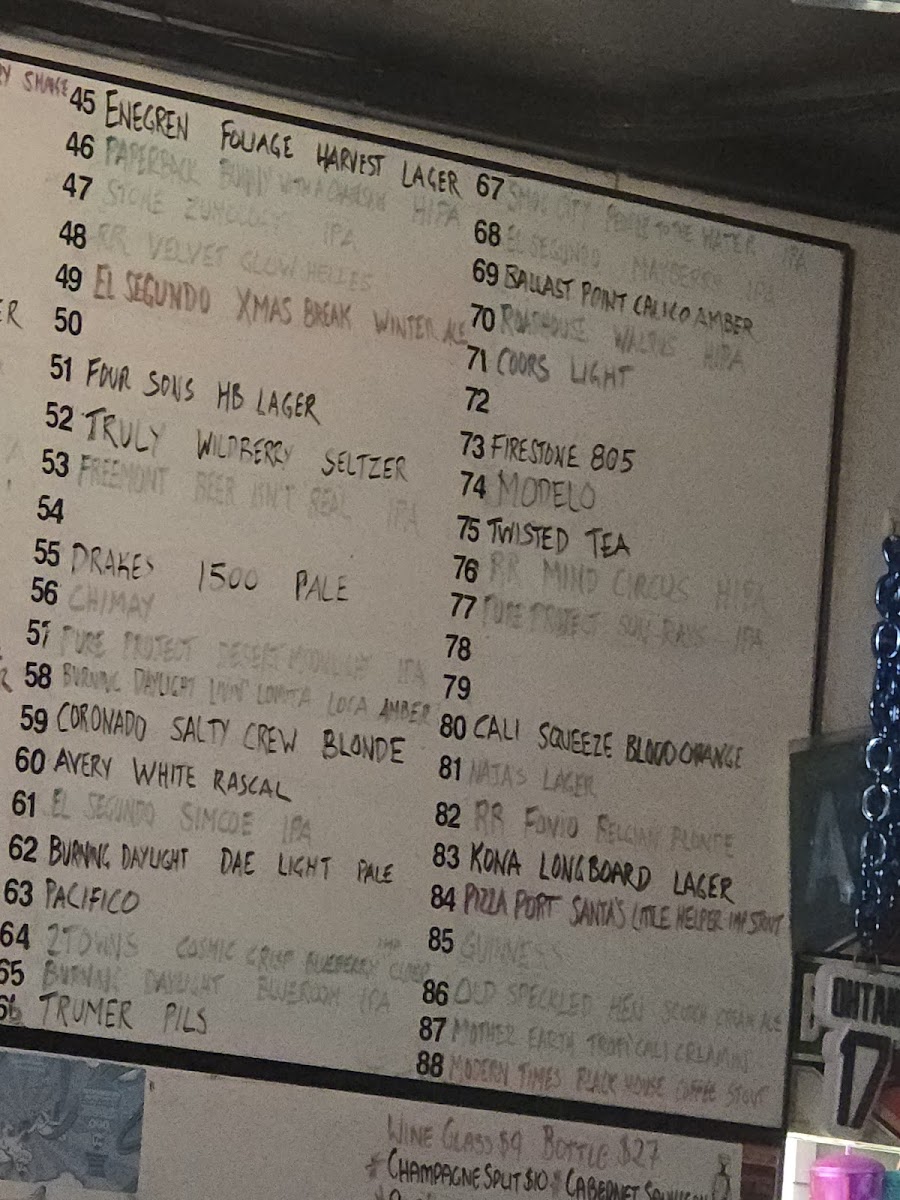 SHAKE
45 ENEGREN FOLIAGE HARVEST LAGER
46 PAPERBACK BUNNY WITH A CHAINSAW HIPA
47 STONE IPA
48 RR VELVET GLOW HELLES
49 EL SEGUNDO XMAS BREAK WINTER ALE
50
51 FOUR SONS HB LAGER
52 TRULY WILDBERRY SELTZER
53 FREEMONT BEER ISN'T REAL IPA
54
55 DRAKES 1500 PALE
56 CHIMAY
57 PURE PROJECT DESERT IPA
58 BURNING DAYLIGHT LIVIN' LOMITA LOCA AMBER
59 CORONADO SALTY CREW BLONDE
60 AVERY WHITE RASCAL
61 EL SEGUNDO SIMCOE IPA
62 BURNING DAYLIGHT DAE LIGHT PALE
63 PACIFICO
64 2TOWNS COSMIC CRISP BLUEBERRY IMP CIDER
65 BURNING DAYLIGHT BLUEROOM IPA
66 TRUMER PILS
67 SMOG CITY PEOPLE TO THE WATER IPA
68 EL SEGUNDO MAYBERRY IPA
69 BALLAST POINT CALICO AMBER
70 ROADHOUSE WALRUS HIPA
71 COORS LIGHT
72
73 FIRESTONE 805
74 MODELO
75 TWISTED TEA
76 RR MIND CIRCUS HIPA
77 PURE PROJECT SUN RAYS IPA
78
79
80 CALI SQUEEZE BLOOD ORANGE
81 NAJA'S LAGER
82 RR FONIO BELGIAN BLONDE
83 KONA LONGBOARD LAGER
84 PIZZA PORT SANTA'S LITTLE HELPER IMP STOUT
85 GUINNESS
86 OLD SPECKLED HEN ALE
87 MOTHER EARTH TROPICALI CREAMIN'
88 MODERN TIMES BLACK HOUSE COFFEE STOUT
WINE GLASS $9 BOTTLE $27
* CHAMPAGNE SPLIT $10 * CABERNET
OHTANI
17